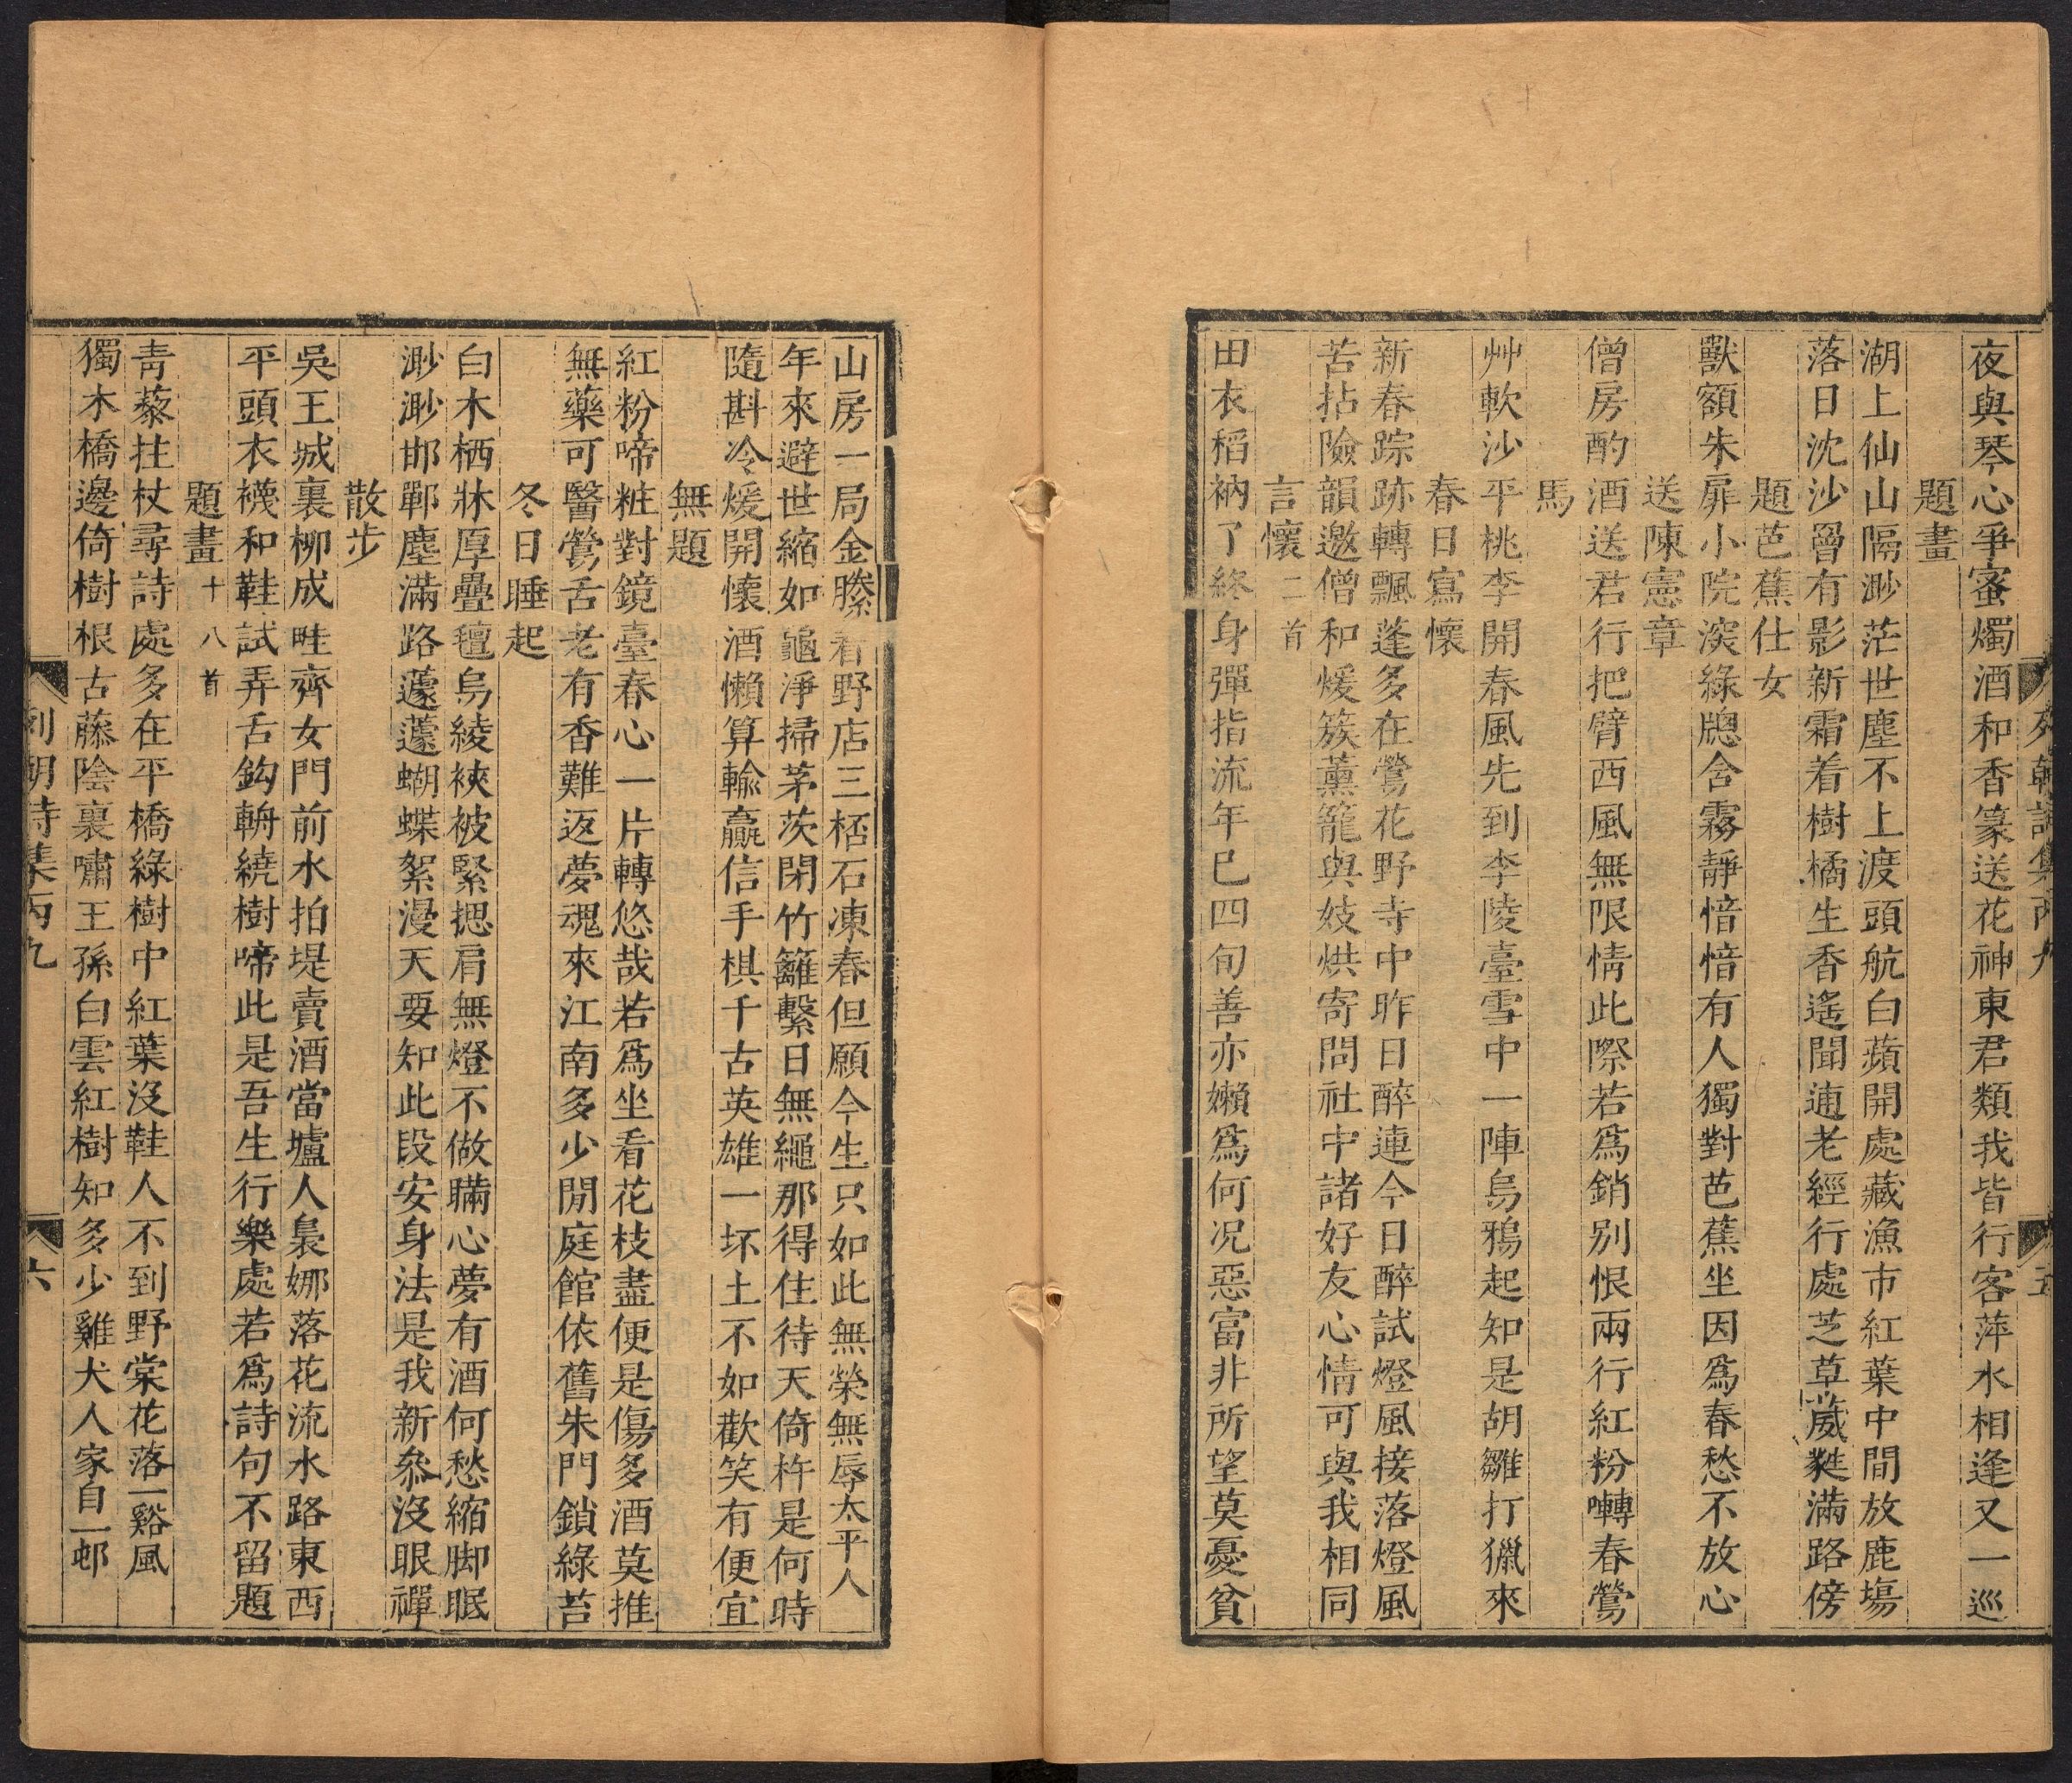 夜與琴心爭蜜燭酒和香篆送花神東君類我皆行客萍水相逢又一巡
題畫
湖上仙山隔渺茫世塵不上渡頭航白蘋開處藏漁市紅葉中間放鹿塲
落日沈沙罾有影新霜着樹橘生香遙聞逋老經行處芝草葳蕤滿路傍
題芭蕉仕女
獸額朱扉小院深綠牕含霧靜愔愔有人獨對芭蕉坐因爲春愁不放心
送陳憲章
僧房酌酒送君行把臂西風無限情此際若爲銷別恨兩行紅粉囀春鶯
馬
艸軟沙平桃李開春風先到李陵臺雪中一陣烏鴉起知是胡雛打獵來
春日寫懷
新春踪跡轉飄蓬多在鶯花野寺中昨日醉連今日醉試燈風接落燈風
苦拈險韻邀僧和煖簇薰籠與妓烘寄問社中諸好友心情可與我相同
言懷二首
田衣稻衲了終身彈指流年已四旬善亦嬾爲何况惡富非所望莫憂貧
山房一局金縢着野店三桮石凍春但願今生只如此無榮無辱太平人
年來避世縮如龜淨掃茅茨閉竹籬繫日無繩那得住待天倚杵是何時
隨斟冷煖開懷酒懶算輸贏信手棋千古英雄一坏土不如歡笑有便宜
無題
紅粉啼粧對鏡臺春心一片轉悠哉若爲坐看花枝盡便是傷多酒莫推
無藥可醫鶯舌老有香難返夢魂來江南多少閒庭館依舊朱門鎖綠苔
冬日睡起
白木栖牀厚疊氊烏綾裌被緊摁肩無燈不做瞞心夢有酒何愁縮脚眠
渺渺邯鄲塵滿路蘧蘧蝴蝶絮漫天要知此段安身法是我新叅沒眼禪
散步
吳王城裏柳成畦齊女門前水拍堤賣酒當壚人裊娜落花流水路東西
平頭衣襪和鞋試弄舌鈎輈繞樹啼此是吾生行樂處若爲詩句不留題
題畫十八首
靑藜拄杖尋詩處多在平橋綠樹中紅葉沒鞋人不到野棠花落一谿風
獨木橋邊倚樹根古藤陰裏嘯王孫白雲紅樹知多少雞犬人家自一邨
列朝詩集丙九
六